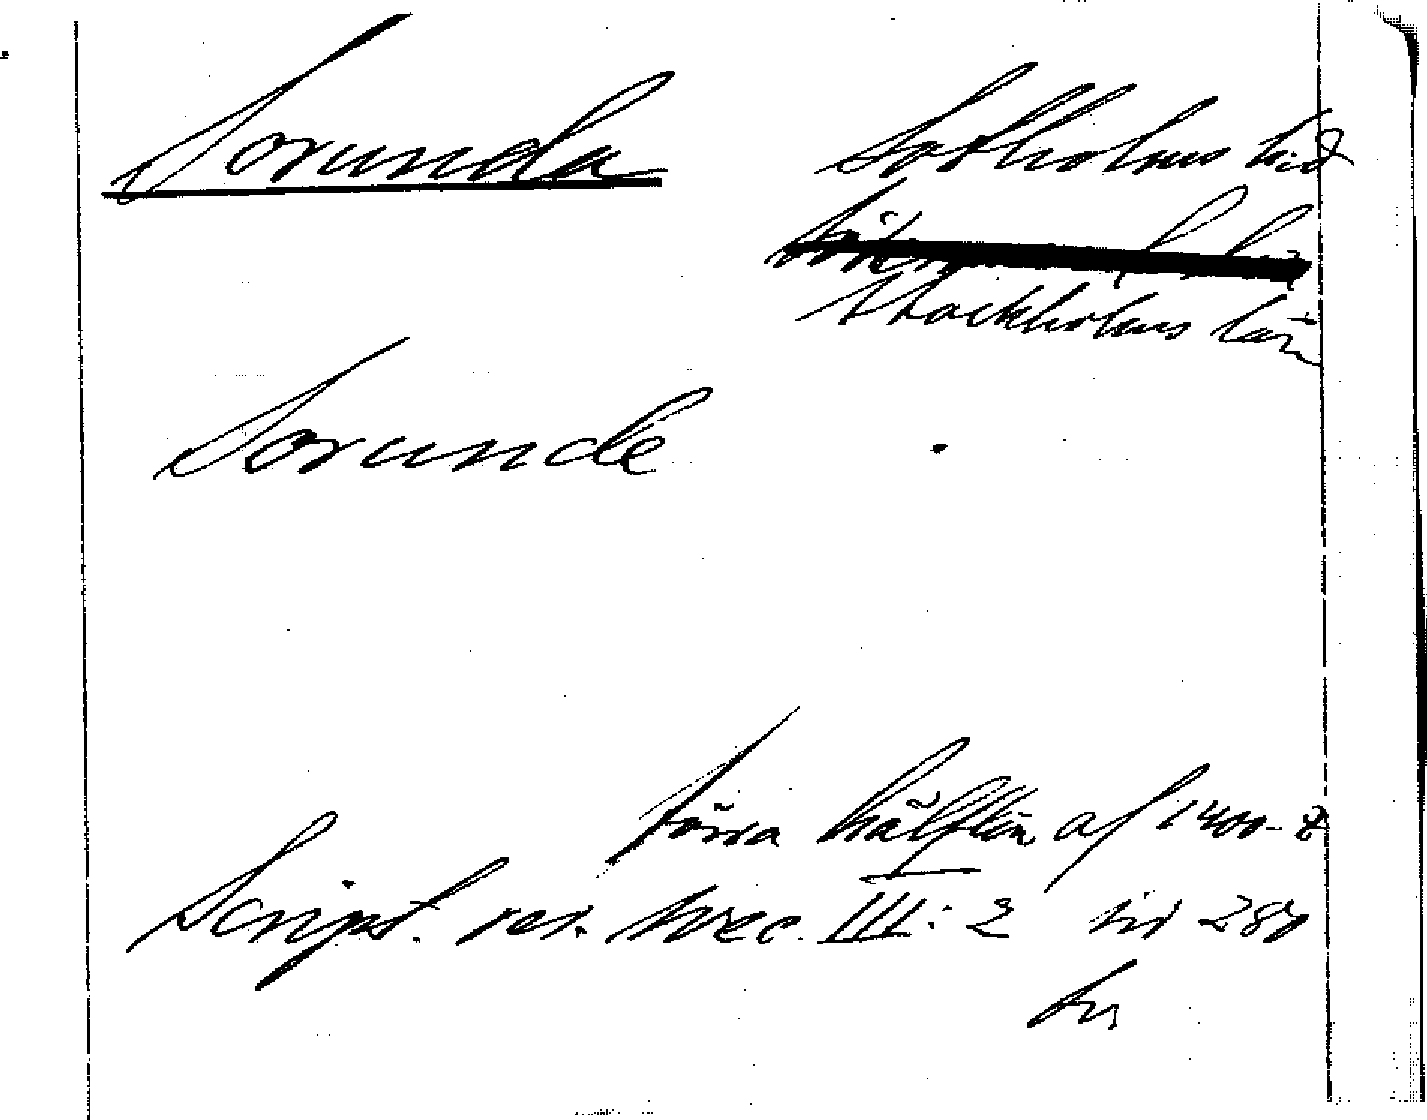 Sorunda
Sotholms hd
Stockholms län
Sorunde
förra hälften af 1400-t
Script. rer. svec. III: 2 sid 287